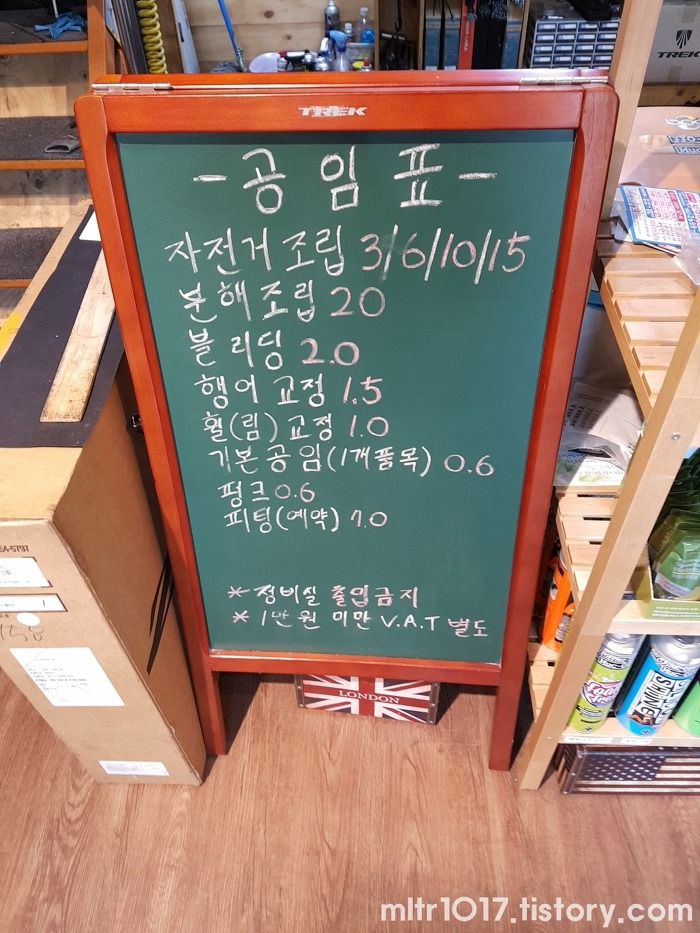 TREK
TREK
-공임표-
자전거 조립 3/6/10/15
분해조립 20
블리딩 2.0
행어 교정 1.5
휠(림) 교정 1.0
기본공임(1개품목) 0.6
펑크 0.6
피팅(예약) 7.0
*정비실 출입금지
*1만원 미만 V.A.T 별도
LONDON
mltr1017.tistory.com